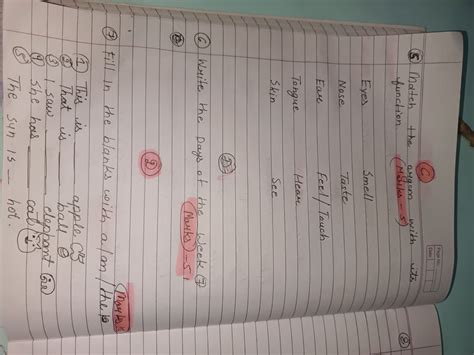 C
⑤ Match the organ with its function (Marks-5)
Eyes Smell
Nose Taste
Ear Feel/Touch
Tongue Hear
Skin See
D
⑥ Write the Days of the Week ⑦
(Marks)-5
⑦ Fill in the blanks with a/an/the
① This is __ apple
② That is __ ball
③ I saw __ elephant
④ She has __ cat
⑤ The sun is __ hot.
⑧